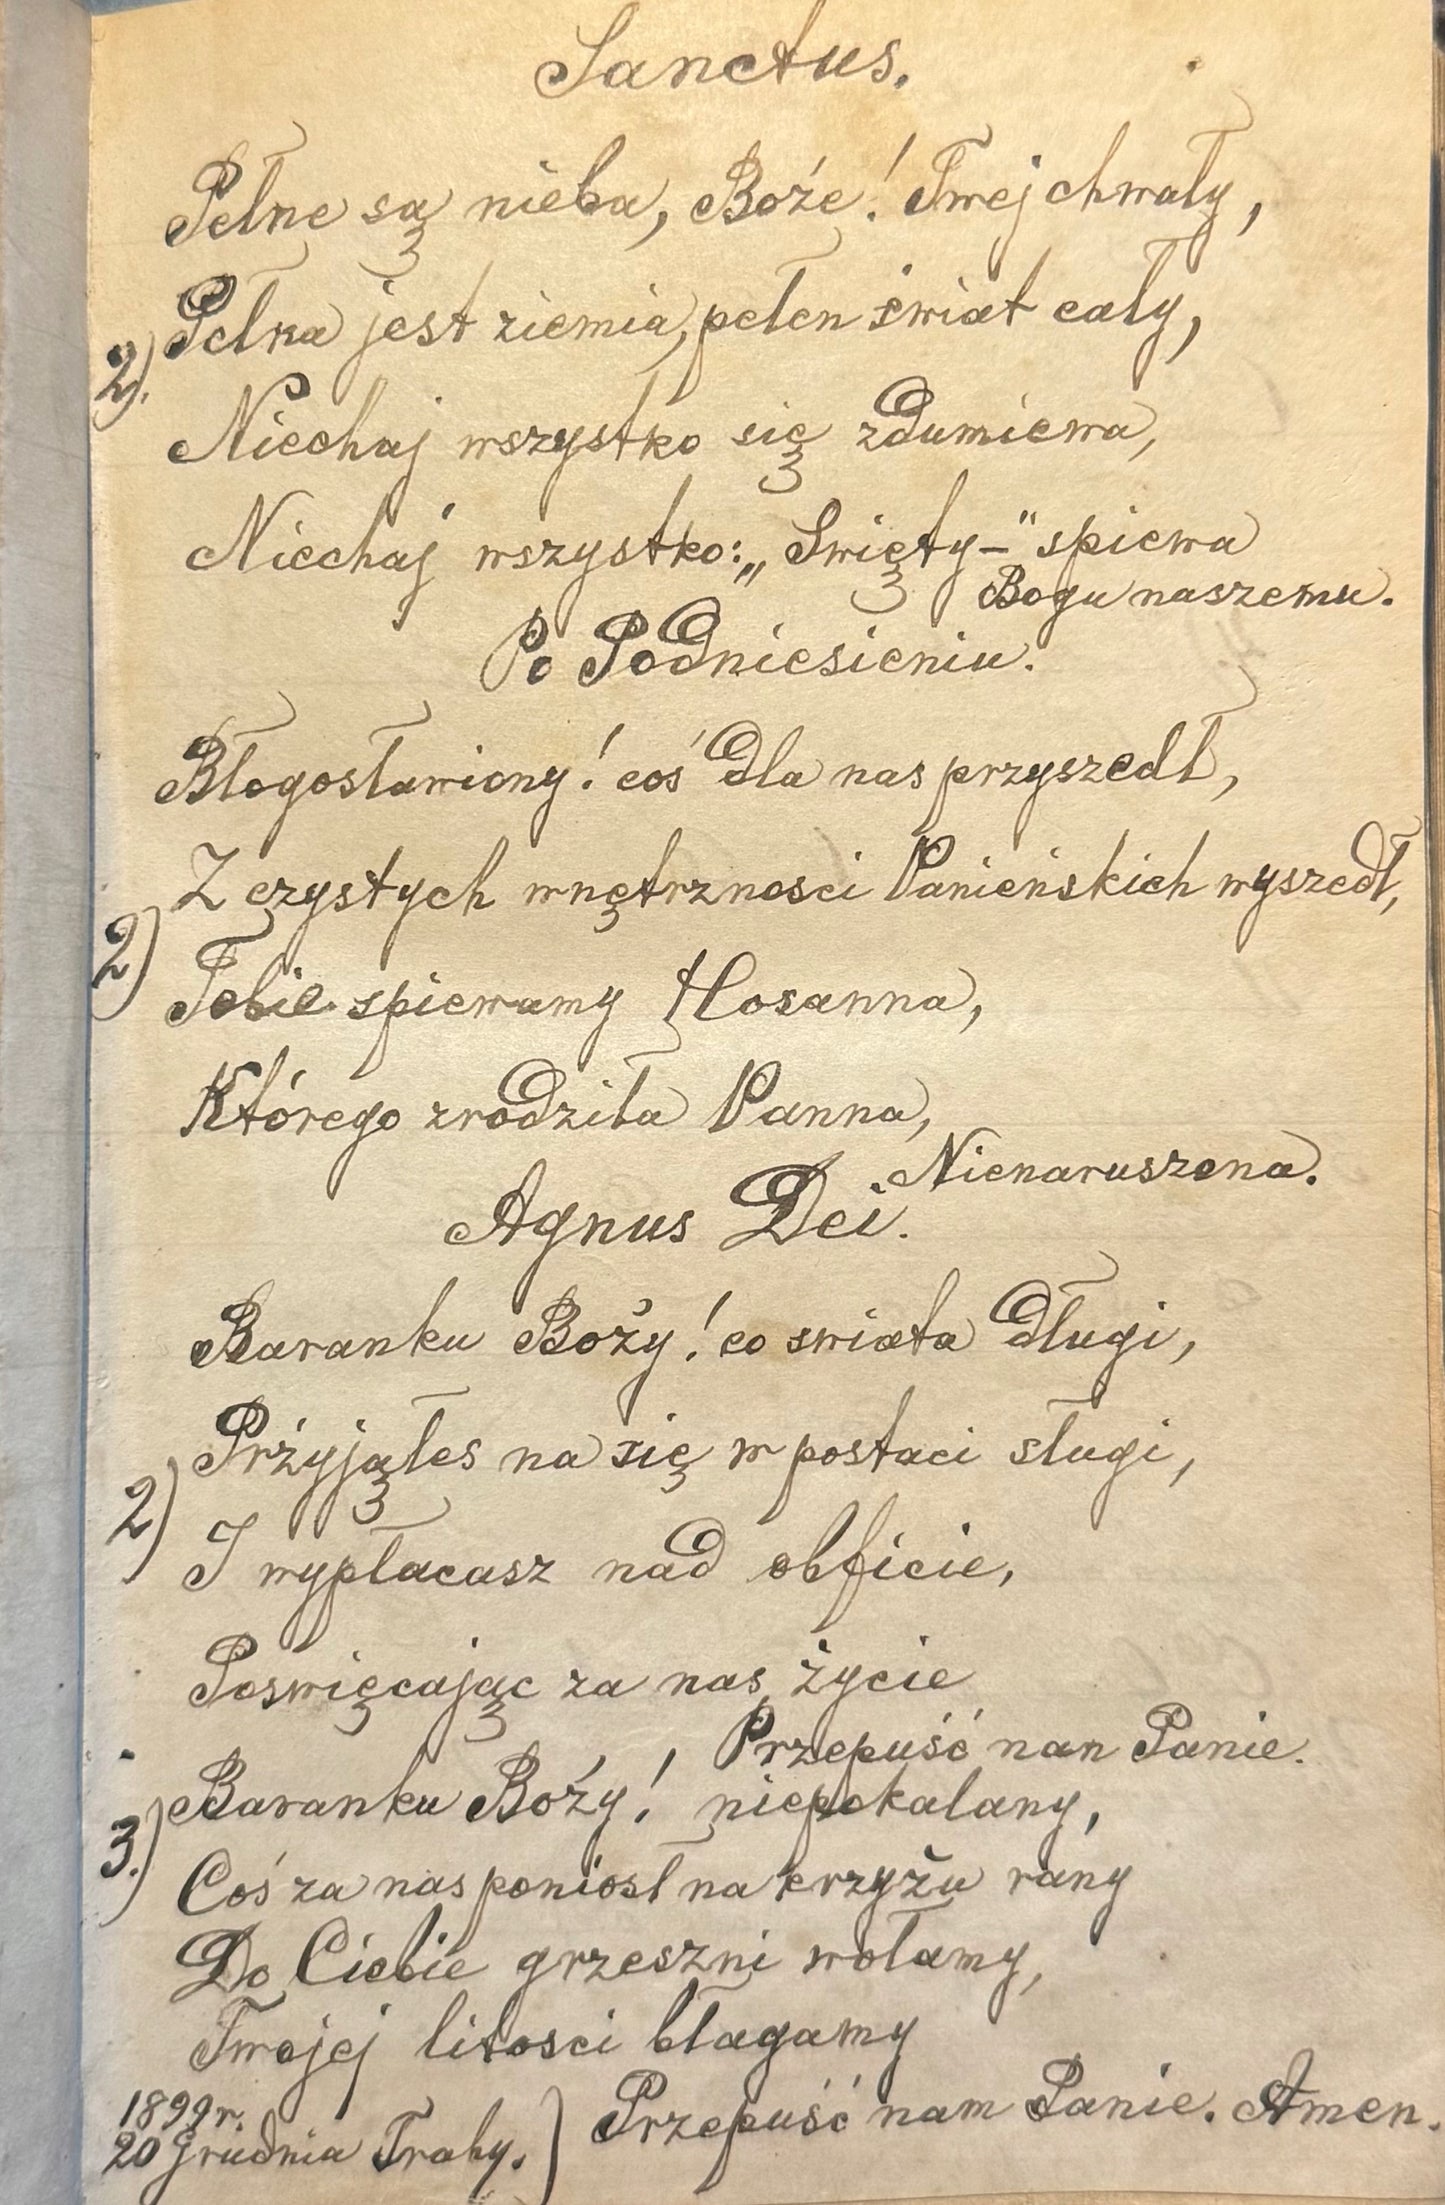 Sanctus.
Pełne są nieba, Boże! Twej chwały,
Pełna jest ziemia, pełen świat cały,
2). Niechaj wszystko się zdumiewa,
Niechaj wszystko: „Swięty–" spiewa
Bogu naszemu.
Po Podniesieniu.
Błogosławiony! coś dla nas przyszedł,
Z czystych wnętrznosci Panieńskich wyszedł,
2) Tobie spiewamy Hosanna,
Którego zrodziła Panna,
Nienaruszona.
Agnus Dei.
Baranku Boży! co swiata długi,
Przyjąłes na się w postaci sługi,
2) I wypłacasz nad obficie,
Poswięcając za nas życie
Przepuść nan Panie.
Baranku Boży! niepokalany,
3.) Coś za nas poniosł na krzyżu rany
Do Ciebie grzeszni wołamy,
Twojej litosci błagamy
Przepuść nam Panie. Amen.
1899 r.
20 Grudnia Traby.